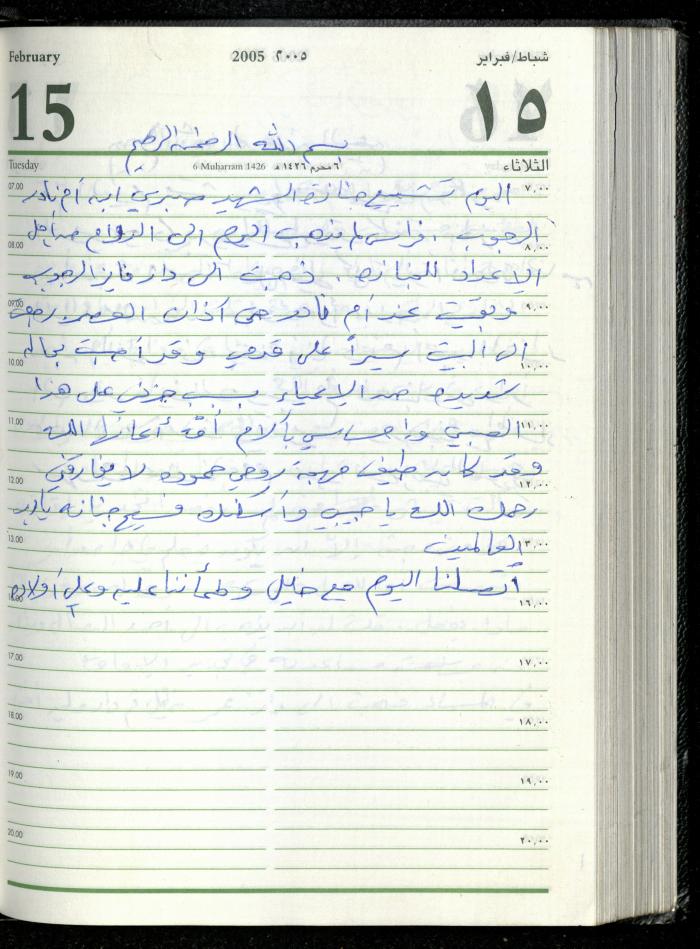 February 2005 ٢٠٠٥ شباط/فبراير
15 ١٥
بسم الله الرحمن الرحيم
Tuesday 6 Muharram 1426 ٦ محرم ١٤٢٦ هـ الثلاثاء
07.00 اليوم تشييع جنازة الشهيد صبري ابن أم نادر ٧,٠٠
الرجوب . فراس لم يذهب اليوم الى الدوام من أجل
08.00 ٨,٠٠
الإعداد للجنازة . ذهبت الى دار فايز الرجوب
09.00 وبقيت عند أم نادر حتى آذان العصر رجعت ٩,٠٠
الى البيت سيراً على قدمي وقد أصبت بحالة
10.00 ١٠,٠٠
شديدة من الإعياء بسبب حزني على هذا
11.00 الصبي واحساسي بآلام أمه أعانها الله ١١,٠٠
وقد كان طيف مهجة روحي حموده لا يفارقني
12.00 ١٢,٠٠
رحمك الله يا حبيبي وأسكنك فسيح جنانه يا رب
13.00 العالمين ١٣,٠٠
أتصلنا اليوم مع خليل وطمأننا عليه وعلى أولاده
١٦,٠٠
17.00 ١٧,٠٠
18.00 ١٨,٠٠
19.00 ١٩,٠٠
20.00 ٢٠,٠٠